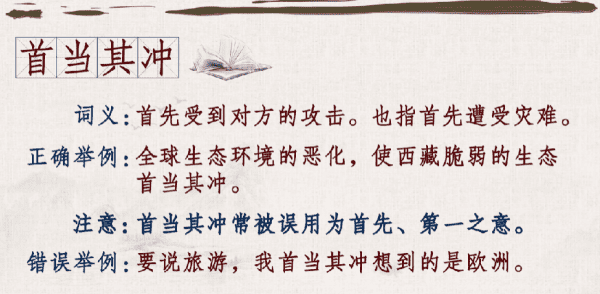 首当其冲
词义：首先受到对方的攻击。也指首先遭受灾难。
正确举例：全球生态环境的恶化，使西藏脆弱的生态
首当其冲。
注意：首当其冲常被误用为首先、第一之意。
错误举例：要说旅游，我首当其冲想到的是欧洲。